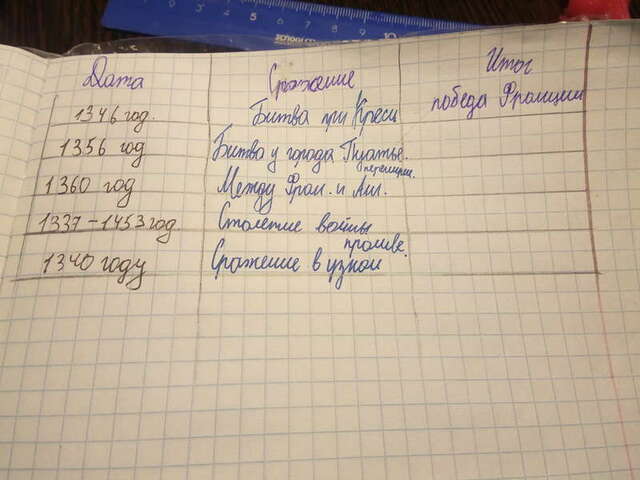 Дата Сражение Итог
1346 год. Битва при Креси победа Франции
1356 год Битва у города Пуатье.
перемирие.
1360 год Между Фран. и Анг.
1337-1453 год. Столетие войны
проливе.
1340 году Сражение в узком